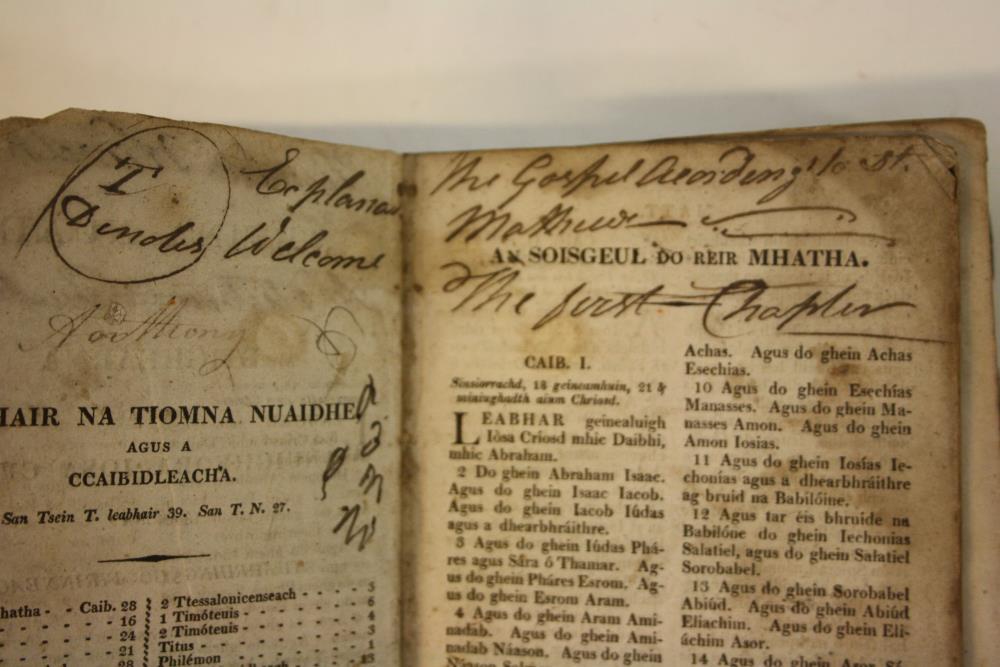 T
Explanas
Welcome
HAIR NA TIOMNA NUAIDHE
AGUS A
CCAIBIDLEACHA.
San Tsein T. leabhair 39. San T. N. 27.
hatha - - Caib. 28
16
24
21
28
2 Ttessalonicenseach - - - - 3
1 Timóteuis - - - - 6
2 Timóteuis - - - - 4
Titus - - - - 3
Philémon - - - - 1
13
The Gospel Acording to St.
Mathew
AN SOISGEUL DO REIR MHATHA.
The first Chapter
CAIB. I.
Sinsiorrachd, 18 geineamhuin, 21 &
miniughadh aium Chriosd.
LEABHAR geinealuigh
Iòsa Criosd mhic Daibhi,
mhic Abraham.
2 Do ghein Abraham Isaac.
Agus do ghein Isaac Iacob.
Agus do ghein Iacob Iúdas
agus a dhearbhráithre.
3 Agus do ghein Iúdas Phá-
res agus Sára ó Thamar. Ag-
us do ghein Pháres Esrom. Ag-
us do ghein Esrom Aram.
4 Agus do ghein Aram Ami-
nadab. Agus do ghein Ami-
nadab Náason. Agus do ghein
Náason
Achas. Agus do ghein Achas
Esechias.
10 Agus do ghein Esechías
Manasses. Agus do ghein Ma-
nasses Amon. Agus do ghein
Amon Iosias.
11 Agus do ghein Iosías Ie-
chonías agus a dhearbhráithre
ag bruid na Babilóine.
12 Agus tar éis bhruide na
Babilóne do ghein Iechonias
Salatiel, agus do ghein Salatiel
Sorobabel.
13 Agus do ghein Sorobabel
Abiúd. Agus do ghein Abiúd
Eliachim. Agus do ghein Eli-
áchim Asor.
14 Agus do ghein Asor